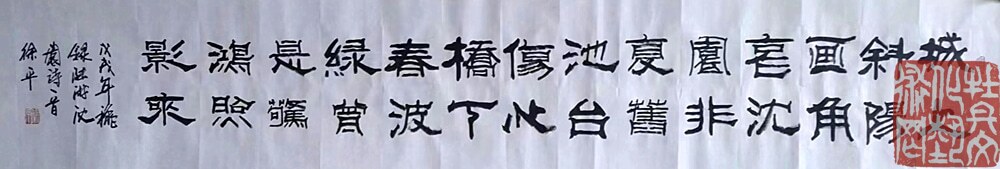 城
斜陽
画角
哀沈
園非
复舊
池台
傷心
橋下
春波
緑曾
是驚
鴻照
影來
戊戌年
錄陸游沈
園詩一首
徐平